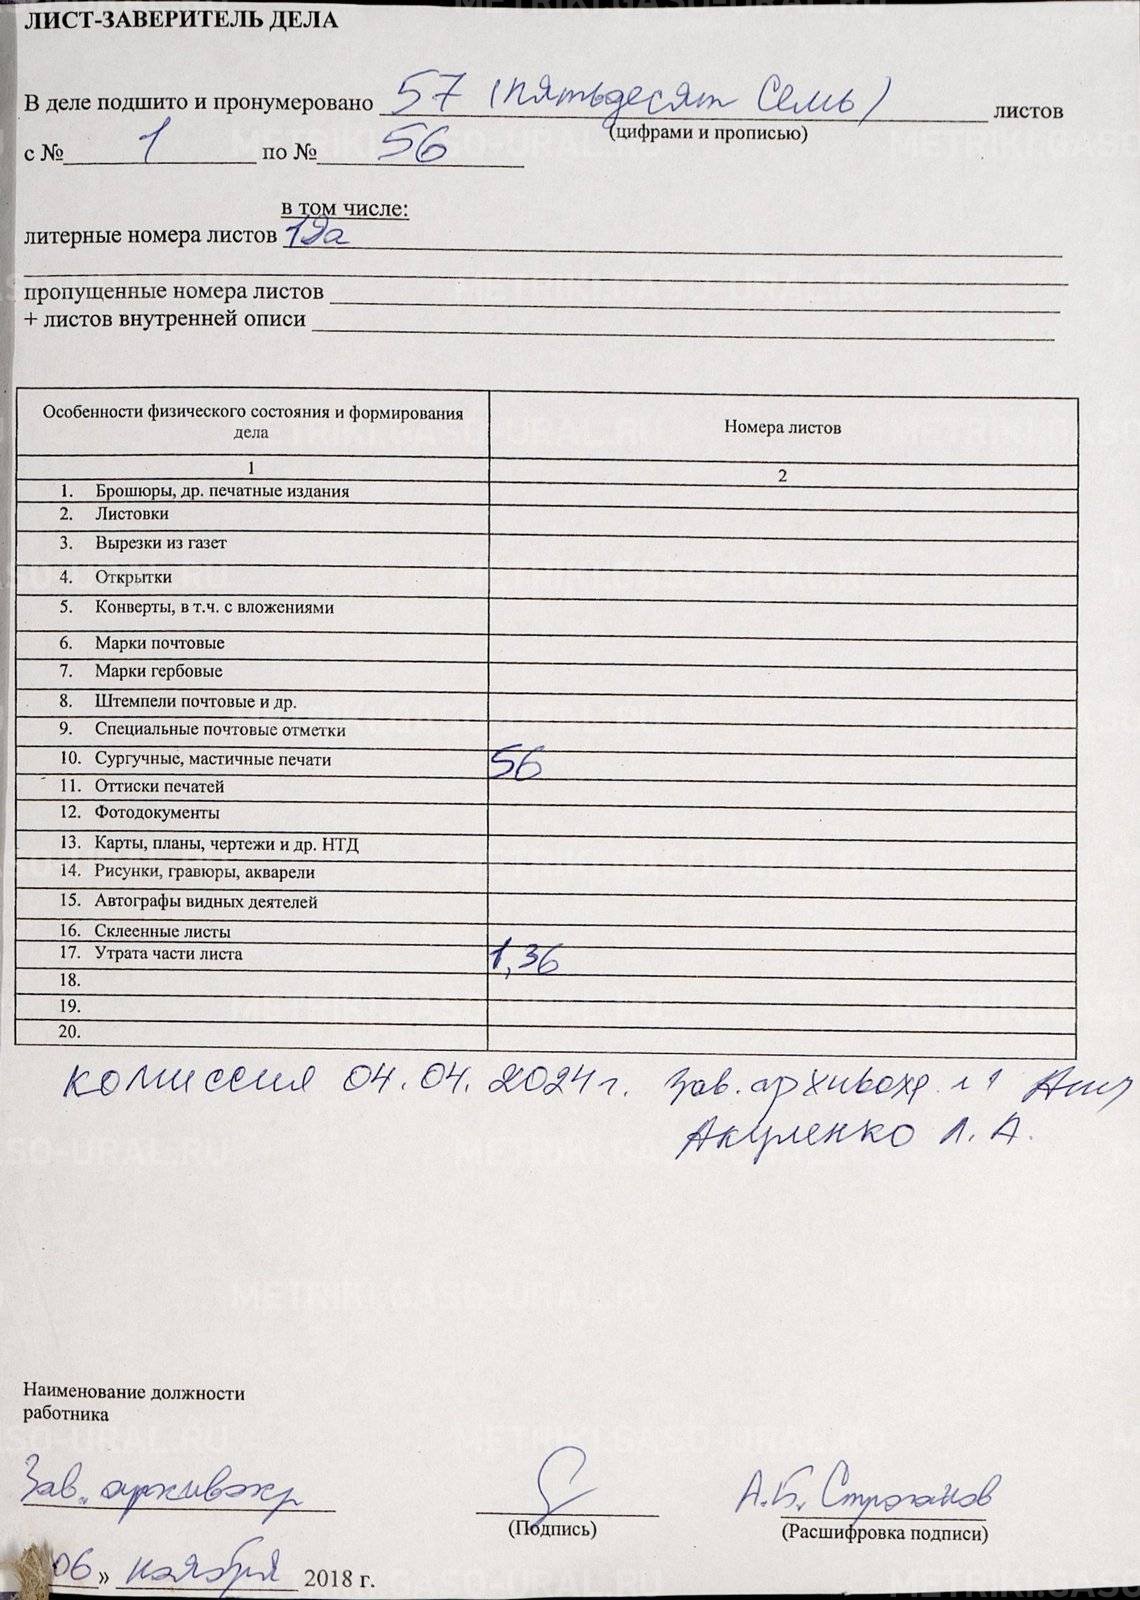 ЛИСТ-ЗАВЕРИТЕЛЬ ДЕЛА
В деле подшито и пронумеровано 57 (пятьдесят Семь) листов
(цифрами и прописью)
с № 1 по № 56
в том числе:
литерные номера листов 19а
пропущенные номера листов
+ листов внутренней описи
Особенности физического состояния и формирования дела Номера листов
1 2
1. Брошюры, др. печатные издания
2. Листовки
3. Вырезки из газет
4. Открытки
5. Конверты, в т.ч. с вложениями
6. Марки почтовые
7. Марки гербовые
8. Штемпели почтовые и др.
9. Специальные почтовые отметки
10. Сургучные, мастичные печати 56
11. Оттиски печатей
12. Фотодокументы
13. Карты, планы, чертежи и др. НТД
14. Рисунки, гравюры, акварели
15. Автографы видных деятелей
16. Склеенные листы
17. Утрата части листа 1,36
18.
19.
20.
комиссия 04.04.2024г. Зав. архивохр. №1
Акуленко Л.А.
Наименование должности
работника
Зав. архивохр А.Б. Строганов
(Подпись) (Расшифровка подписи)
06» ноября 2018 г.
METRIKI.GASO-URAL.RU